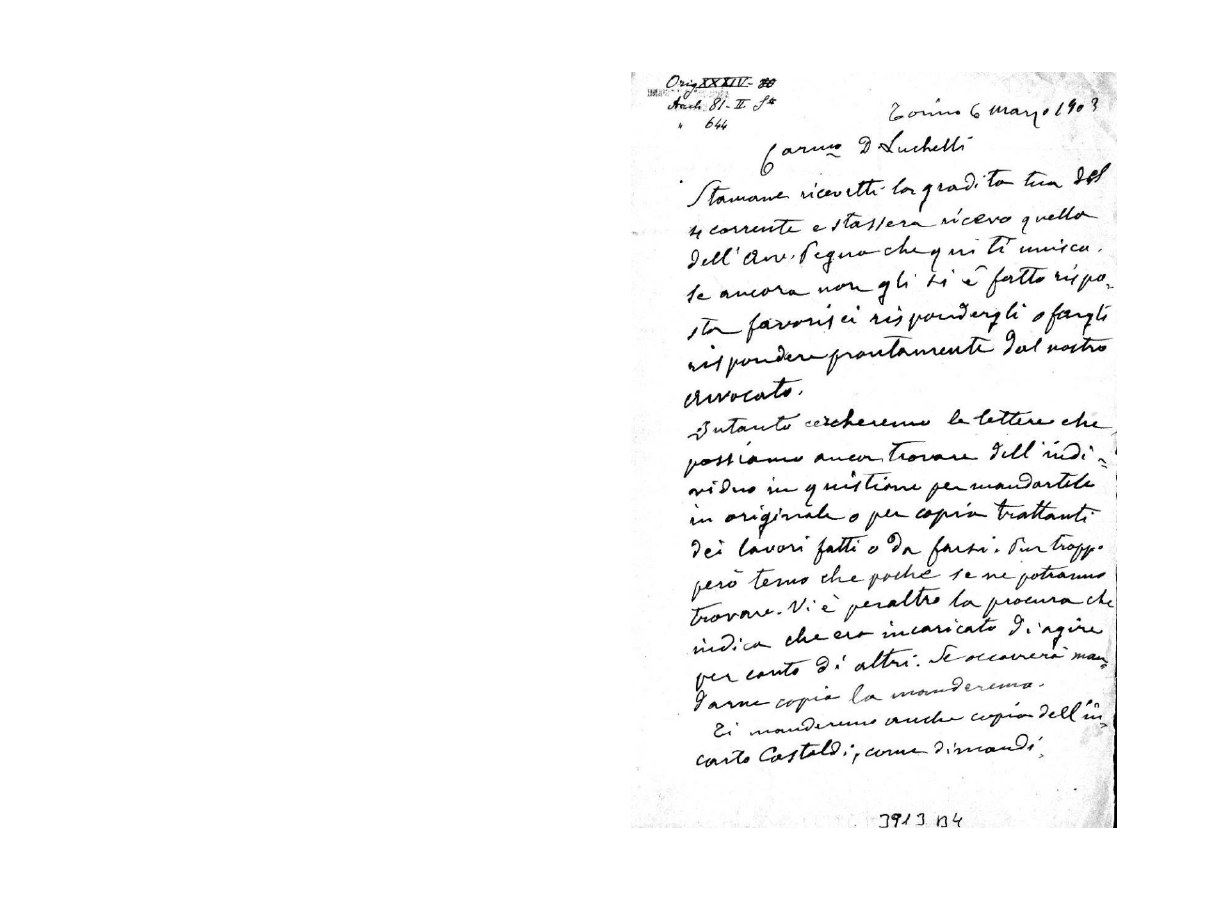 Orig XXXIV-
Arch. 81-II Sta
" 644
Torino 6 marzo 1903
Carmo D Luchelli
Stamane ricevetti la gradita tua del
4 corrente e stassera ricevo quella
dell'Avv. Pegna che qui ti unisco.
Se ancora non gli si è fatto rispo=
sta favorisci rispondergli o fargli
rispondere prontamente dal nostro
avvocato.
Intanto cercheremo le lettere che
possiamo ancor trovare dell'indi=
viduo in quistione per mandartele
in originale o per copia trattanti
dei lavori fatti o da farsi. Pur troppo
però temo che poche se ne potranno
trovare. Vi è peraltro la procura che
indica che era incaricato di agire
per conto di altri. Se occorrerà man=
darne copia la manderemo.
Ti manderemo anche copia dell'in=
carto Castaldi, come dimandi.
3913 B4